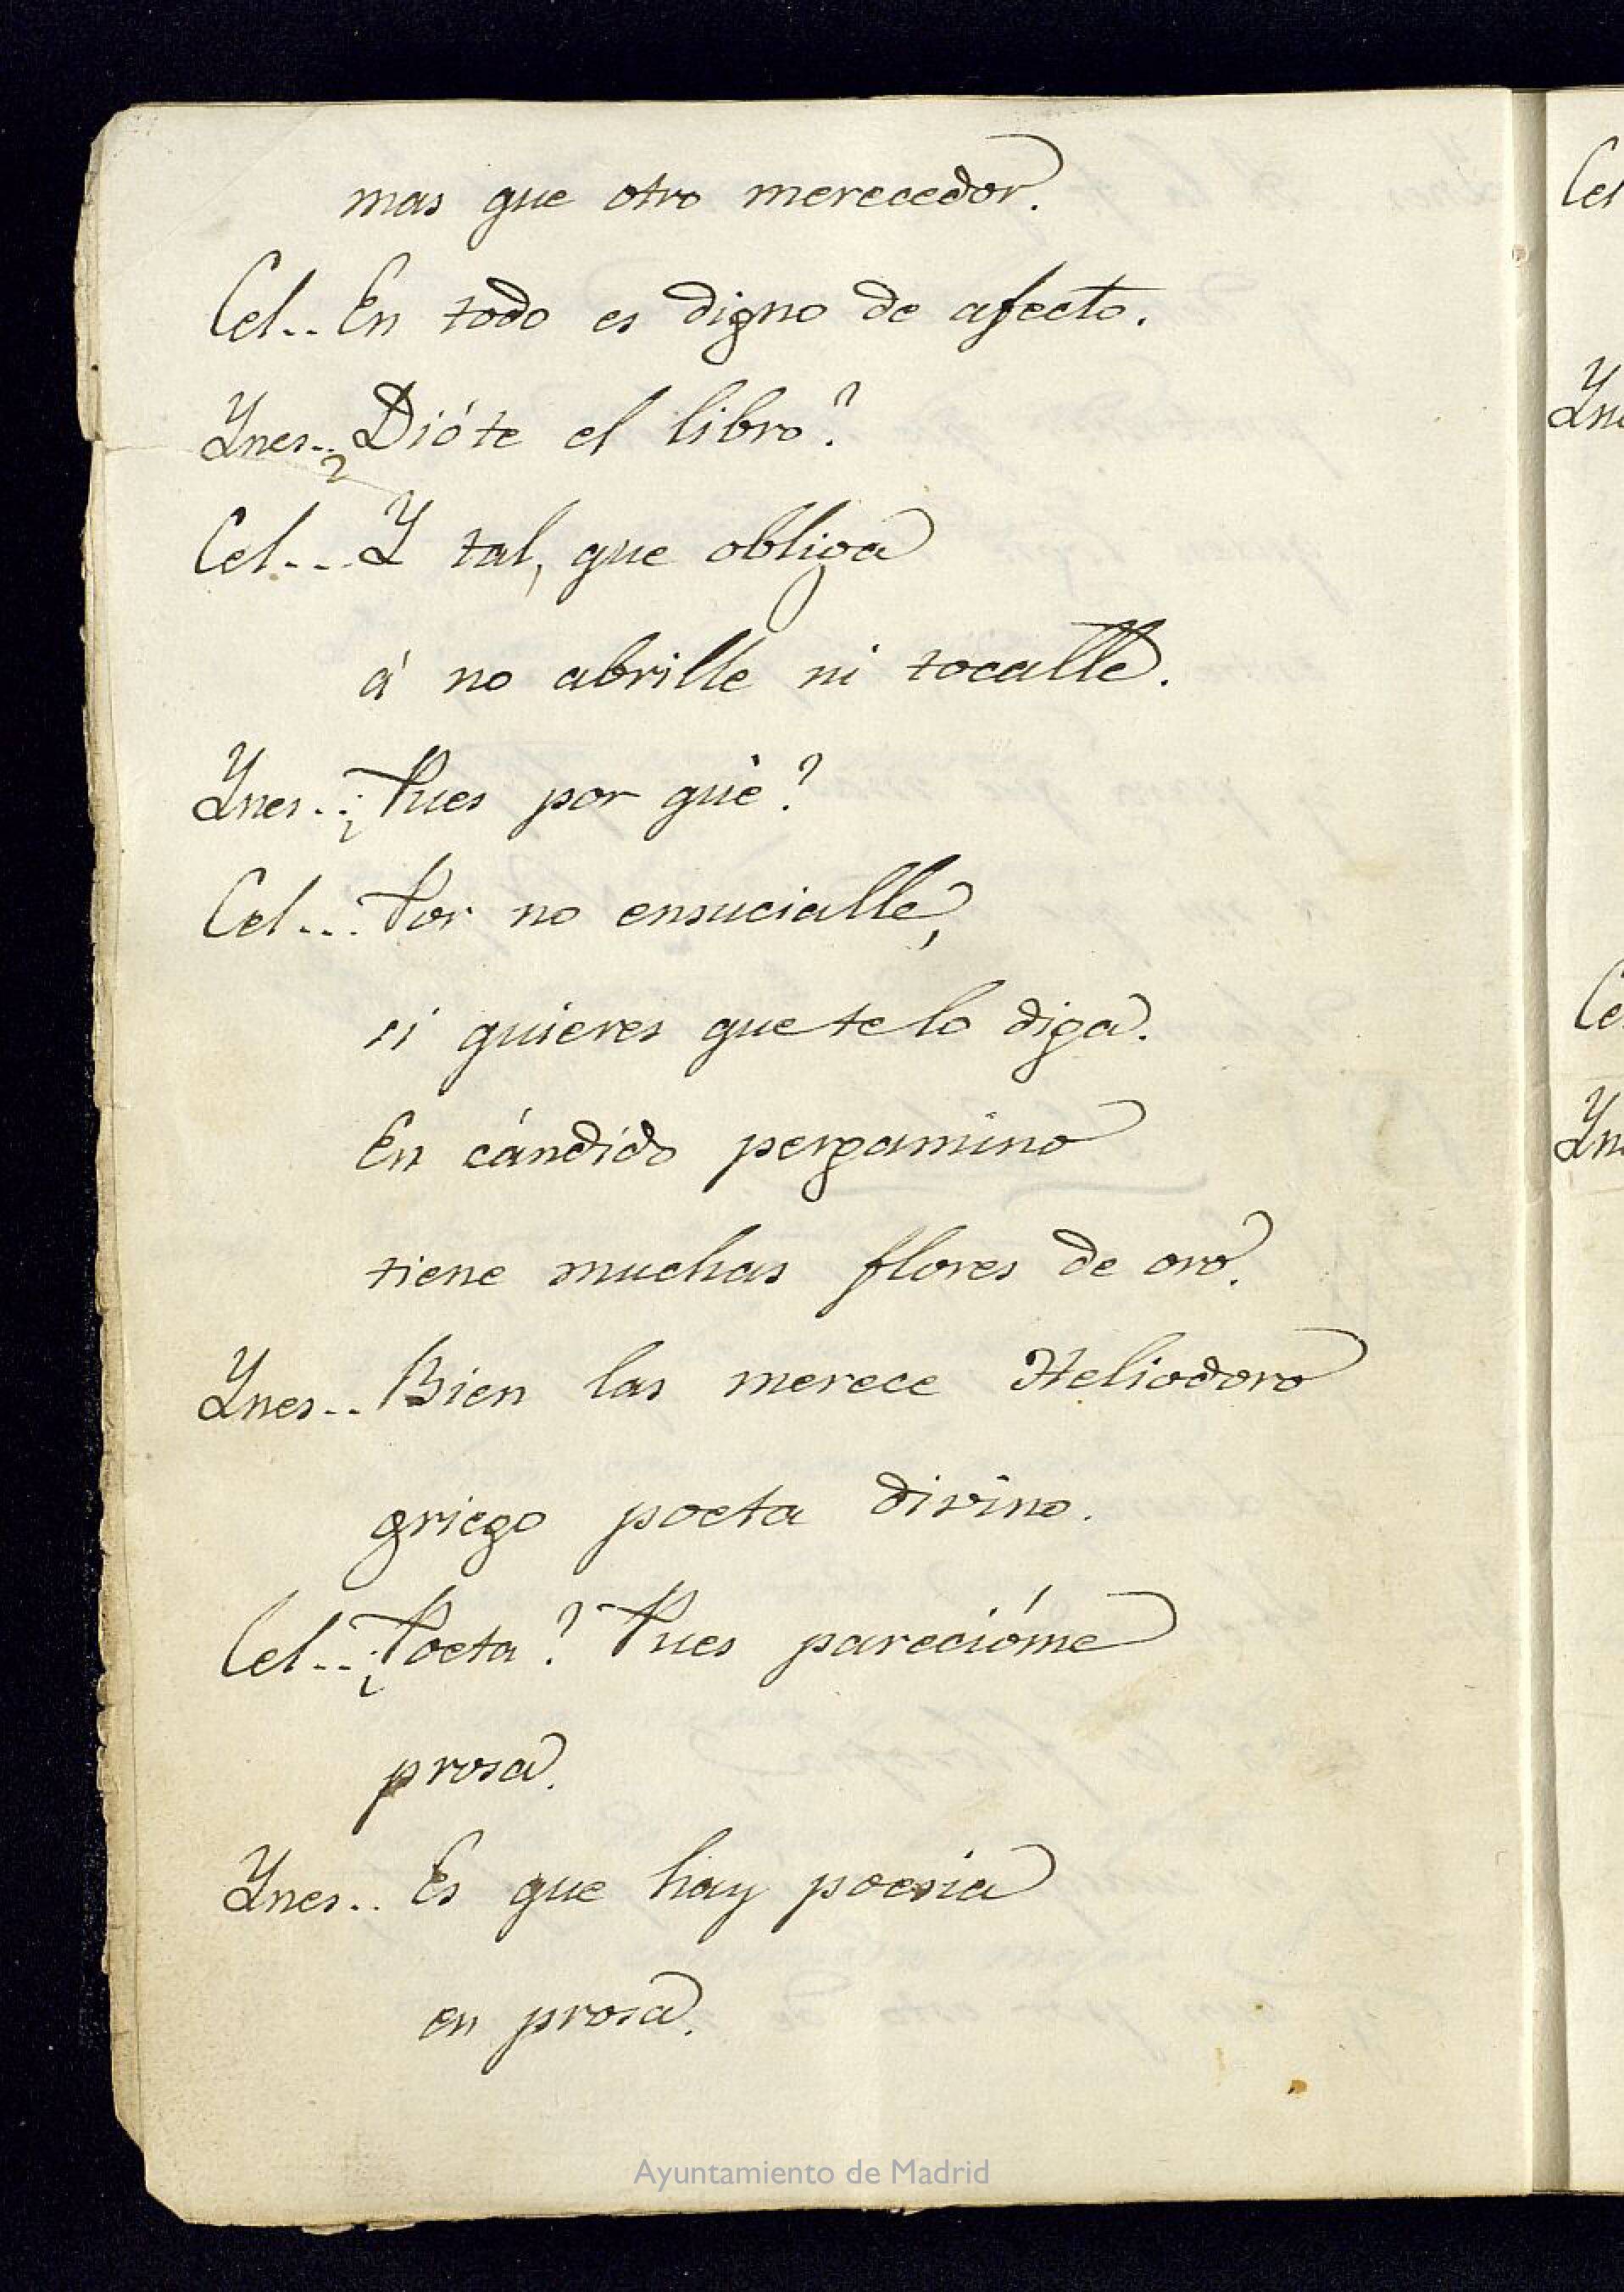 mas que otro merecedor.
Cel.. En todo es digno de afecto.
Ynes.. Dióte el libro?
Cel... Y tal, que obliga
á no abrille ni tocalle.
Ynes.. ¿Pues por qué?
Cel... Por no ensucialle,
si quieres que te lo diga.
En cándido pergamino
tiene muchas flores de oro.
Ynes.. Bien las merece Heliodoro
griego poeta divino.
Cel.. ¿Poeta? Pues parecióme
prosa.
Ynes.. Es que hay poesia
en prosa.
Cel
Yne
Ce
Yn
Ayuntamiento de Madrid